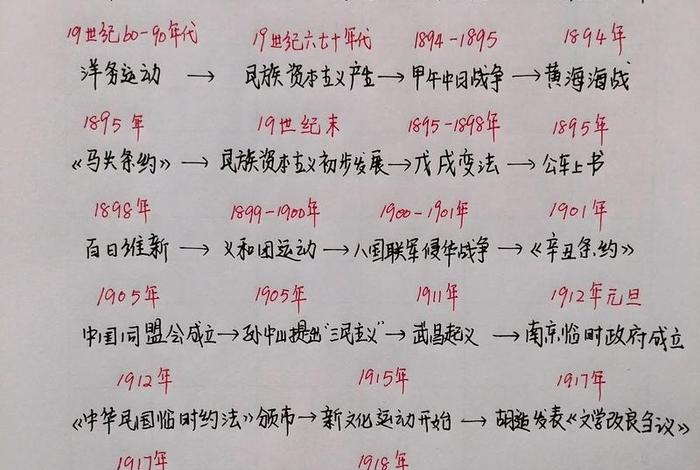 19世纪60-90年代 19世纪六七十年代 1894-1895 1894年
洋务运动 → 民族资本主义产生 → 甲午中日战争 → 黄海海战
1895年 19世纪末 1895-1898年 1895年
《马关条约》 → 民族资本主义初步发展 → 戊戌变法 → 公车上书
1898年 1899-1900年 1900-1901年 1901年
百日维新 → 义和团运动 → 八国联军侵华战争 → 《辛丑条约》
1905年 1905年 1911年 1912年元旦
中国同盟会成立 → 孙中山提出"三民主义" → 武昌起义 → 南京临时政府成立
1912年 1915年 1917年
《中华民国临时约法》颁布 → 新文化运动开始 → 胡适发表《文学改良刍议》
1917年 1918年